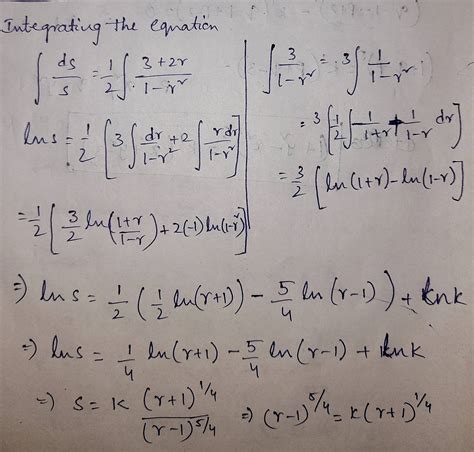 Integrating the equation
∫ ds/s = 1/2 ∫ (3+2r)/(1-r²)
ln s = 1/2 [3 ∫ dr/(1-r²) + 2 ∫ r dr/(1-r²)]
= 1/2 [3/2 ln((1+r)/(1-r)) + 2(-1) ln(1-r²)]
∫ 3/(1-r²) = 3 ∫ 1/(1-r²)
= 3 [1/2 ∫ 1/(1+r) + 1/(1-r) dr]
= 3/2 [ln(1+r) - ln(1-r)]
⇒ ln s = 1/2 (1/2 ln(r+1)) - 5/4 ln(r-1)) + ln k
⇒ ln s = 1/4 ln(r+1) - 5/4 ln(r-1) + ln k
⇒ s = k (r+1)^1/4 / (r-1)^5/4 ⇒ (r-1)^5/4 = k(r+1)^1/4